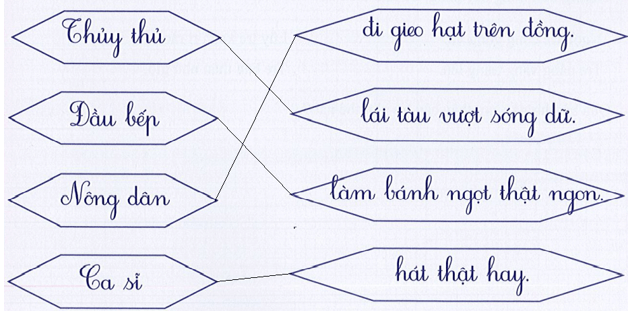 Thủy thủ
đi gieo hạt trên đồng.
Đầu bếp
lái tàu vượt sóng dữ.
Nông dân
làm bánh ngọt thật ngon.
Ca sĩ
hát thật hay.